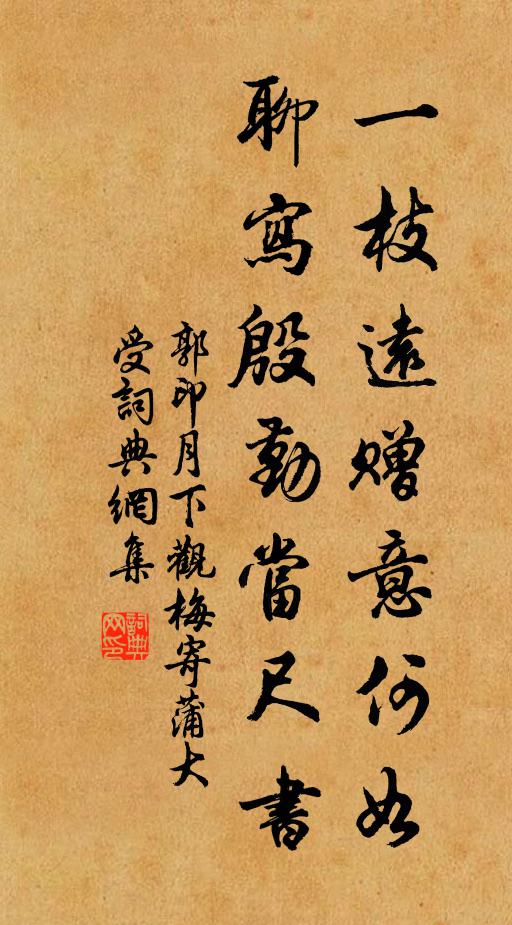 一枝遠贈意何如
聊寫殷勤當尺書
郭印月下觀梅寄蒲大
受詞典網集
詞典網印